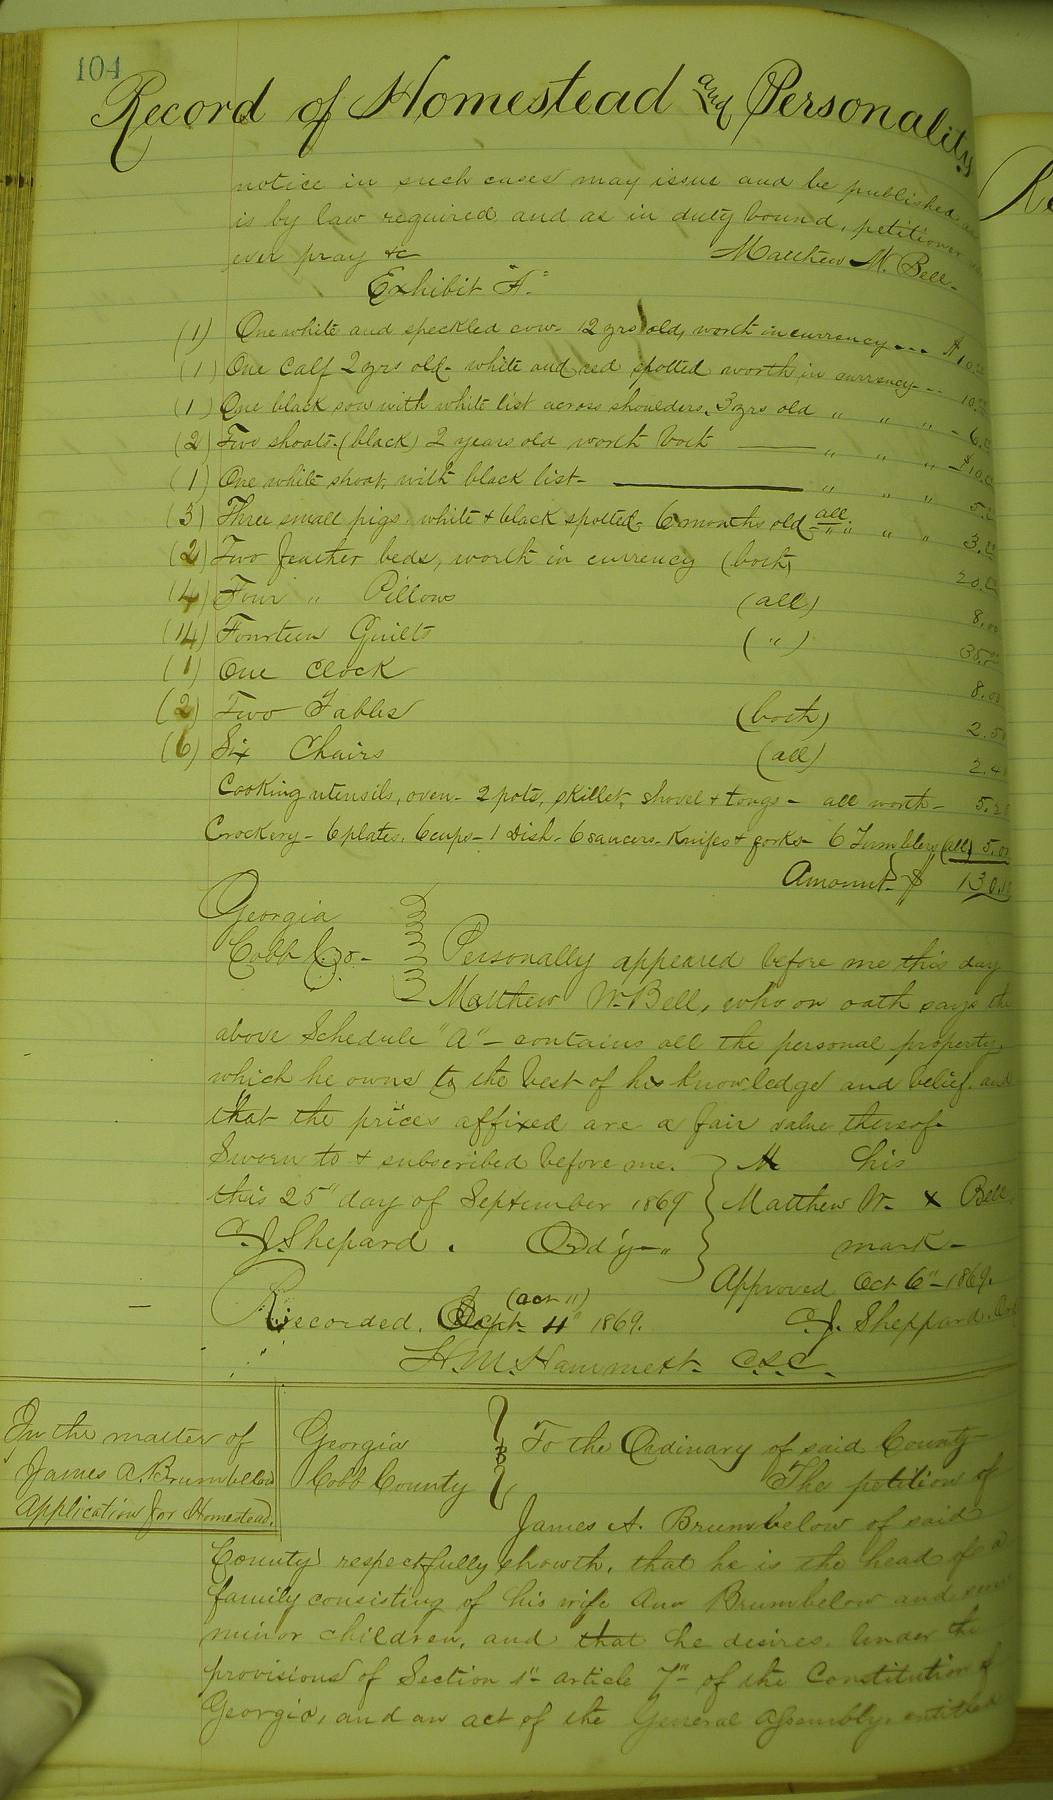 104
Record of Homestead and Personality
notice in such cases may issue and be published as
is by law required and as in duty bound, petitioner will
ever pray &c Matthew W. Bell.
Exhibit "A."
(1) One white and speckled cow 12 yrs old, worth in currency $10.00
(1) One Calf 2 yrs old - white and red spotted worth in currency 10.00
(1) One black sow with white list across shoulders. 3 yrs old " " " - 6.00
(2) Two shoats. (black) 2 years old worth both " " " $10.00
(1) One white shoat, with black list - " " " 5.00
(3) Three small pigs. white & black spotted - 6 months old - all " " " 3.00
(2) Two feather beds, worth in currency (both) 20.00
(4) Four " Pillows (all) 8.00
(14) Fourteen Quilts ( " ) 35.00
(1) One Clock 8.00
(2) Two Tables (both) 2.50
(6) Six Chairs (all) 2.40
Cooking utensils, oven - 2 pots, skillet, shovel & tongs - all worth - 5.20
Crockery - 6 plates. 6 cups - 1 Dish - 6 saucers. Knifes & forks - 6 Tumblers (all) 5.00
Amount $ 130.10
Georgia
Cobb Co - Personally appeared before me this day
Matthew W. Bell, who on oath says the
above Schedule "A" - contains all the personal property
which he owns to the best of his knowledge and belief and
that the prices affixed are a fair value thereof.
Sworn to & subscribed before me. M his
this 25" day of September 1869 Matthew W. X Bell
C. J. Shepard. Ord'y mark -
Approved Oct 6" - 1869.
Recorded. Sept. 4" (oct 11) 1869. C. J. Sheppard. Ord
H. M. Hammett. C.S.C.
In the matter of
James A. Brumbelow
Application for Homestead.
Georgia To the Ordinary of said County
Cobb County The petition of
James A. Brumbelow of said
County respectfully showth, that he is the head of a
family consisting of his wife Ann Brumbelow and
minor children, and that he desires. Under the
provisions of Section 1" article 7" of the Constitution of
Georgia, and an act of the General Assembly. entitled